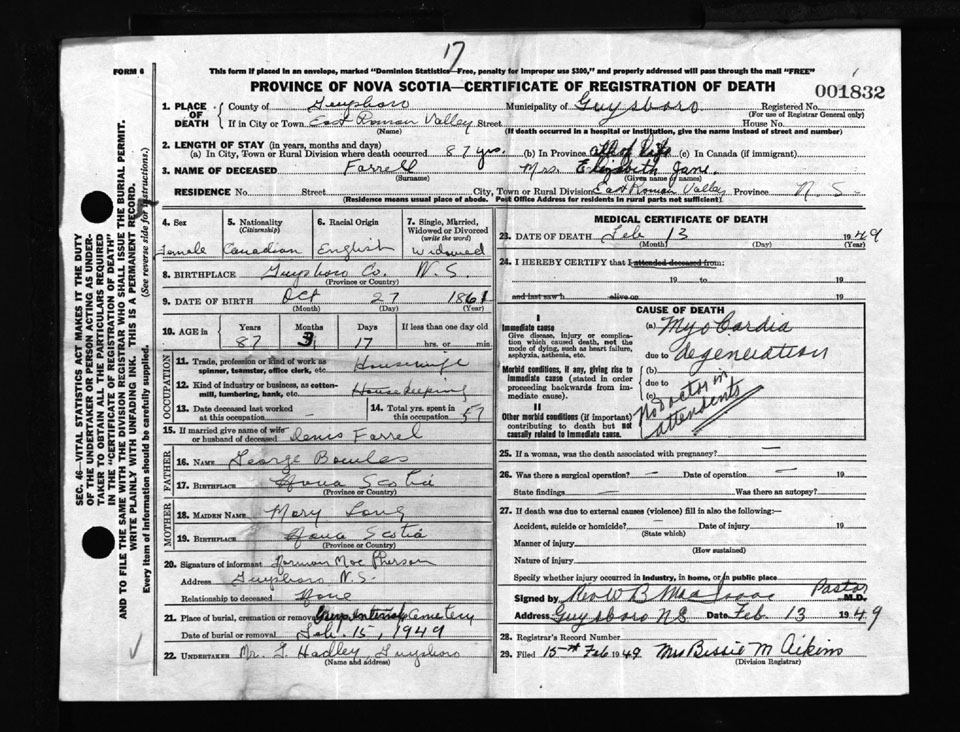 17
FORM 6
This form if placed in an envelope, marked "Dominion Statistics—Free, penalty for improper use $300," and properly addressed will pass through the mail "FREE"
PROVINCE OF NOVA SCOTIA—CERTIFICATE OF REGISTRATION OF DEATH
001832
SEC. 46—VITAL STATISTICS ACT MAKES IT THE DUTY
OF THE UNDERTAKER OR PERSON ACTING AS UNDER-
TAKER TO OBTAIN ALL THE PARTICULARS REQUIRED
IN THE "CERTIFICATE OF REGISTRATION OF DEATH"
AND TO FILE THE SAME WITH THE DIVISION REGISTRAR WHO SHALL ISSUE THE BURIAL PERMIT.
WRITE PLAINLY WITH UNFADING INK. THIS IS A PERMANENT RECORD.
Every item of information should be carefully supplied. (See reverse side for instructions.)
1. PLACE OF DEATH County of Guysboro Municipality of Guysboro Registered No.
(For use of Registrar General only)
If in City or Town East Roman Valley Street House No.
(Name) (If death occurred in a hospital or institution, give the name instead of street and number)
2. LENGTH OF STAY (in years, months and days)
(a) In City, Town or Rural Division where death occurred 87 yrs. (b) In Province all of life (c) In Canada (if immigrant)
3. NAME OF DECEASED Farrell Mrs. Elizabeth Jane.
(Surname) (Given name or names)
RESIDENCE No. Street City, Town or Rural Division East Roman Valley Province N. S.
(Residence means usual place of abode. Post Office Address for residents in rural parts not sufficient)
4. Sex 5. Nationality (Citizenship) 6. Racial Origin 7. Single, Married, Widowed or Divorced (write the word)
Female Canadian English Widowed
8. BIRTHPLACE Guysboro Co. N. S.
(Province or Country)
9. DATE OF BIRTH Oct 27 1861
(Month) (Day) (Year)
10. AGE in Years Months Days If less than one day old
87 3 17 hrs. or min.
OCCUPATION
11. Trade, profession or kind of work as spinner, teamster, office clerk, etc. Housewife
12. Kind of industry or business, as cotton-mill, lumbering, bank, etc. House keeping
13. Date deceased last worked at this occupation — 14. Total yrs. spent in this occupation 57
15. If married give name of wife or husband of deceased Denis Farrel
FATHER
16. NAME George Bowles
17. BIRTHPLACE Nova Scotia
(Province or Country)
MOTHER
18. MAIDEN NAME Mary Long
19. BIRTHPLACE Nova Scotia
(Province or Country)
20. Signature of informant Norman Mac Pherson
Address Guysboro N.S.
Relationship to deceased None
21. Place of burial, cremation or removal Cemetery
Date of burial or removal Feb. 15, 1949
22. UNDERTAKER Mr. Hadley, Guysboro
(Name and address)
MEDICAL CERTIFICATE OF DEATH
23. DATE OF DEATH Feb 13 1949
(Month) (Day) (Year)
24. I HEREBY CERTIFY that I attended deceased from:
19 to 19
and last saw h alive on 19
CAUSE OF DEATH
I
Immediate cause
Give disease, injury or complication which caused death, not the mode of dying, such as heart failure, asphyxia, asthenia, etc.
(a) Myo Cardia
due to degeneration
Morbid conditions, if any, giving rise to immediate cause (stated in order proceeding backwards from immediate cause).
(b)
due to
(c)
No doctor in attendents
II
Other morbid conditions (if important) contributing to death but not causally related to immediate cause.
25. If a woman, was the death associated with pregnancy? —
26. Was there a surgical operation? — Date of operation — 19
State findings — Was there an autopsy?
27. If death was due to external causes (violence) fill in also the following:—
Accident, suicide or homicide? — Date of injury 19
(State which)
Manner of injury
(How sustained)
Nature of injury
Specify whether injury occurred in industry, in home, or in public place
Signed by Rev W B MacIsaac Pastor M.D.
Address Guysboro N.S. Date Feb 13 1949
28. Registrar's Record Number
29. Filed 15th Feb 1949 Mrs Bessie M Aikins
(Division Registrar)